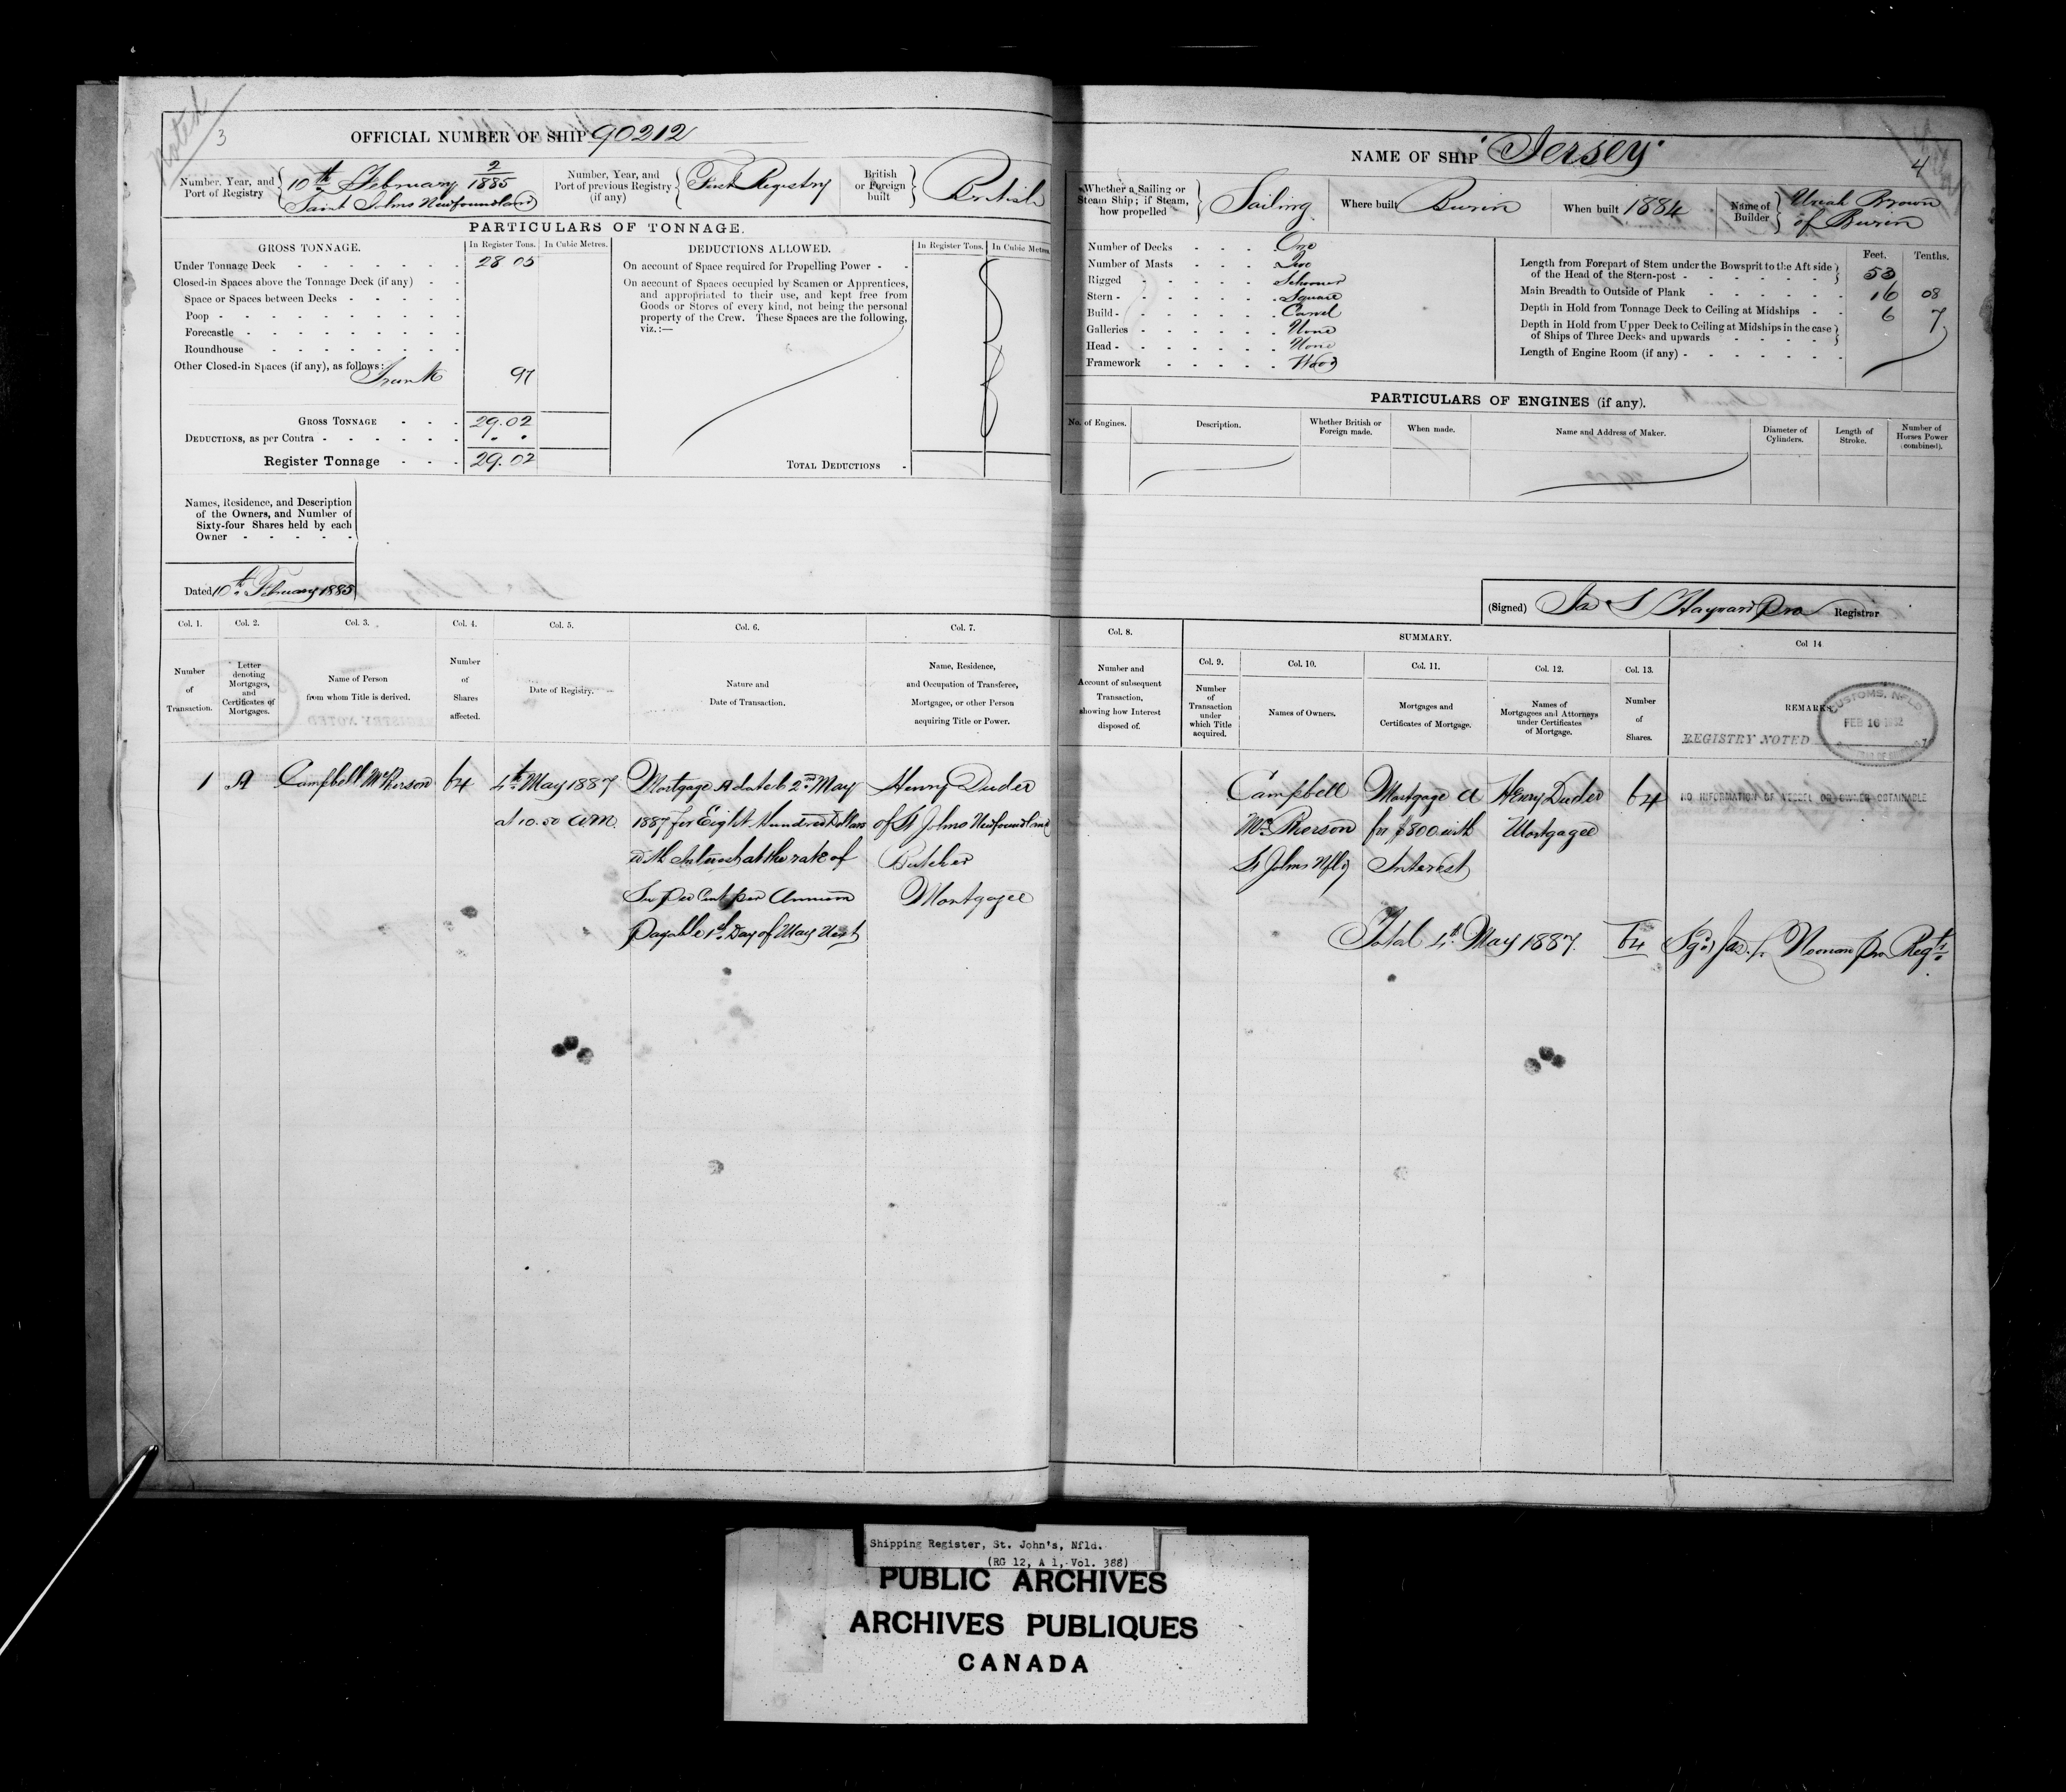 3
OFFICIAL NUMBER OF SHIP 90212
Number, Year, and Port of Registry { 10th February 2/1885
Saint Johns Newfoundland
Number, Year, and Port of previous Registry (if any) { First Registry
British or Foreign built } British
PARTICULARS OF TONNAGE.
GROSS TONNAGE.
In Register Tons.
In Cubic Metres.
Under Tonnage Deck 28 05
Closed-in Spaces above the Tonnage Deck (if any)
Space or Spaces between Decks
Poop
Forecastle
Roundhouse
Other Closed-in Spaces (if any), as follows:
Trunk 97
GROSS TONNAGE 29.02
DEDUCTIONS, as per Contra
Register Tonnage 29.02
DEDUCTIONS ALLOWED.
In Register Tons.
In Cubic Metres.
On account of Space required for Propelling Power
On account of Spaces occupied by Seamen or Apprentices,
and appropriated to their use, and kept free from
Goods or Stores of every kind, not being the personal
property of the Crew. These Spaces are the following,
viz.:—
TOTAL DEDUCTIONS
Names, Residence, and Description
of the Owners, and Number of
Sixty-four Shares held by each
Owner
Dated 10th February 1885
Col. 1.
Number of Transaction.
Col. 2.
Letter denoting Mortgages, and Certificates of Mortgages.
Col. 3.
Name of Person from whom Title is derived.
Col. 4.
Number of Shares affected.
Col. 5.
Date of Registry.
Col. 6.
Nature and Date of Transaction.
Col. 7.
Name, Residence, and Occupation of Transferee, Mortgagee, or other Person acquiring Title or Power.
1 A Campbell McPherson 64 4th May 1887 Mortgage A dated 2nd May Henry Duder
at 10.50 A.M. 1887 for Eight Hundred Dollars of St Johns Newfoundland
with Interest at the rate of Butcher
per Cent per Annum Mortgagee
Payable 1st Day of May Next
4
NAME OF SHIP "Jersey"
Whether a Sailing or Steam Ship; if Steam, how propelled } Sailing
Where built Burin
When built 1884
Name of Builder { Uriah Brown
of Burin
Number of Decks One
Number of Masts Two
Rigged Schooner
Stern Square
Build Carvel
Galleries None
Head None
Framework Wood
Feet. Tenths.
Length from Forepart of Stem under the Bowsprit to the Aft side of the Head of the Stern-post 53
Main Breadth to Outside of Plank 16 08
Depth in Hold from Tonnage Deck to Ceiling at Midships 6 7
Depth in Hold from Upper Deck to Ceiling at Midships in the case of Ships of Three Decks and upwards
Length of Engine Room (if any)
PARTICULARS OF ENGINES (if any).
No. of Engines.
Description.
Whether British or Foreign made.
When made.
Name and Address of Maker.
Diameter of Cylinders.
Length of Stroke.
Number of Horses Power (combined).
(Signed) Jas S Hayward Pro Registrar
Col. 8.
Number and Account of subsequent Transaction, showing how Interest disposed of.
SUMMARY.
Col. 9.
Number of Transaction under which Title acquired.
Col. 10.
Names of Owners.
Col. 11.
Mortgages and Certificates of Mortgage.
Col. 12.
Names of Mortgagees and Attorneys under Certificates of Mortgage.
Col. 13.
Number of Shares.
Col 14
REMARKS
CUSTOMS, NFLD
FEB 16
REGISTRY NOTED
Campbell Mortgage A Henry Duder 64 NO INFORMATION OF VESSEL OR OWNER OBTAINABLE
McPherson for $800 with Mortgagee
St Johns Nfld Interest
Total 4th May 1887. 64 (Sgd) Jas. Noonan pro Regtr
Shipping Register, St. John's, Nfld.
(RG 12, A 1, Vol. 388)
PUBLIC ARCHIVES
ARCHIVES PUBLIQUES
CANADA